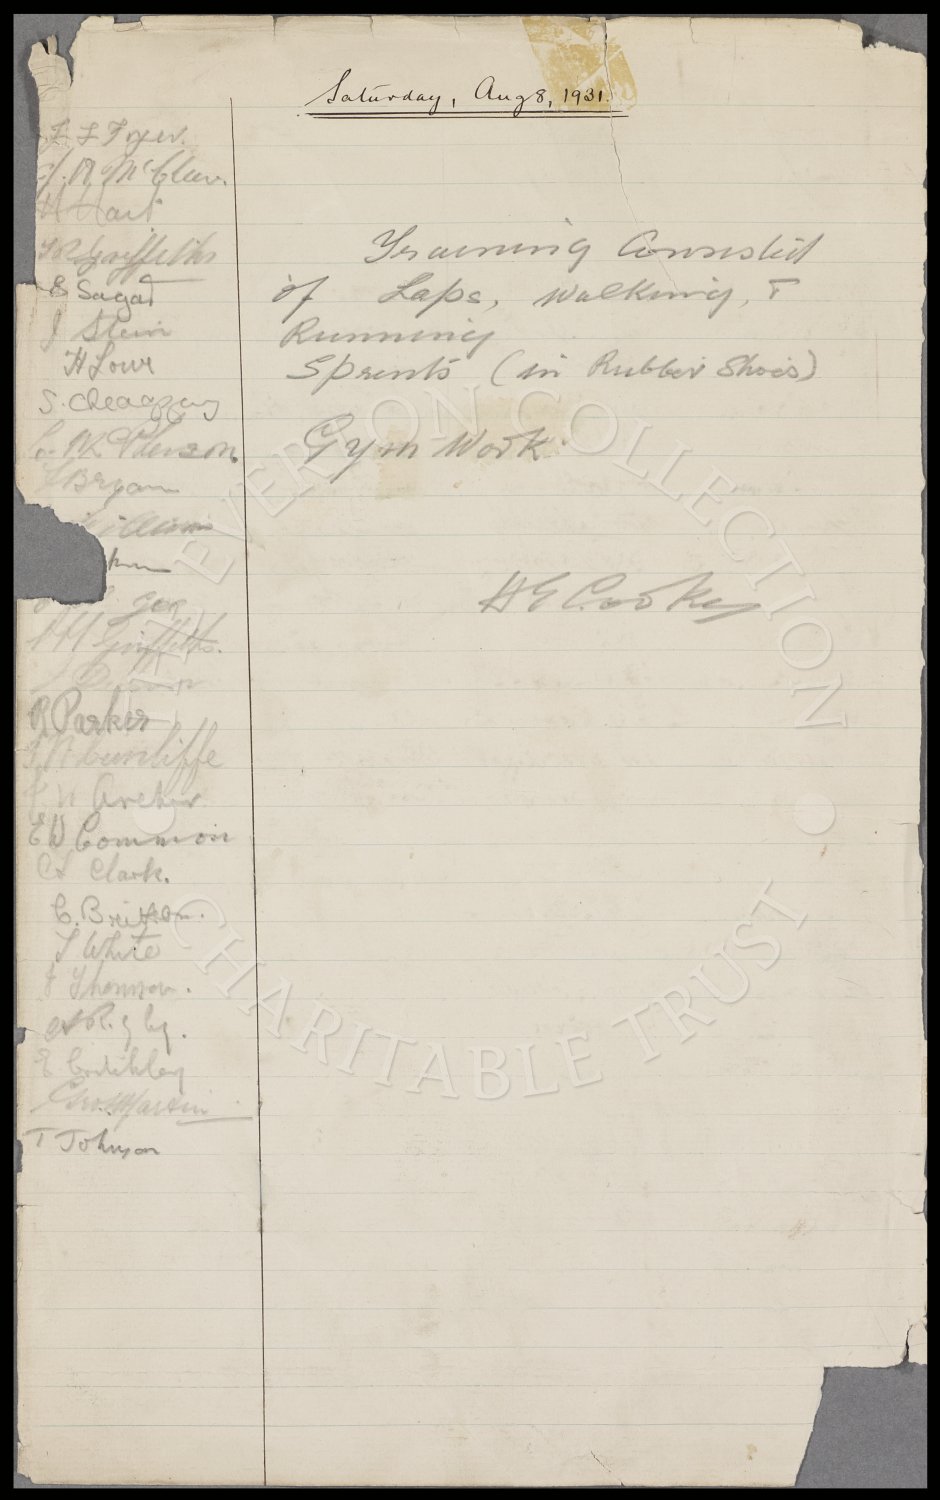 Saturday, Aug 8, 1931.
J R McClure.
H Hart
T R Griffiths
E Sagar
J Stein
H Lowe
L McPherson.
J Bryan
Williams
P H Griffiths.
R Parker
J N Cunliffe
J W Archer
E W Common
C A Clark.
C. Britton.
T White
J Thomson.
A Rigby.
E Critchley
Geo. Martin
T Johnson
Training Consisted
of Laps, Walking, &
Running
Sprints (in Rubber Shoes)
Gym Work
H E Cooke
EVERTON COLLECTION
CHARITABLE TRUST